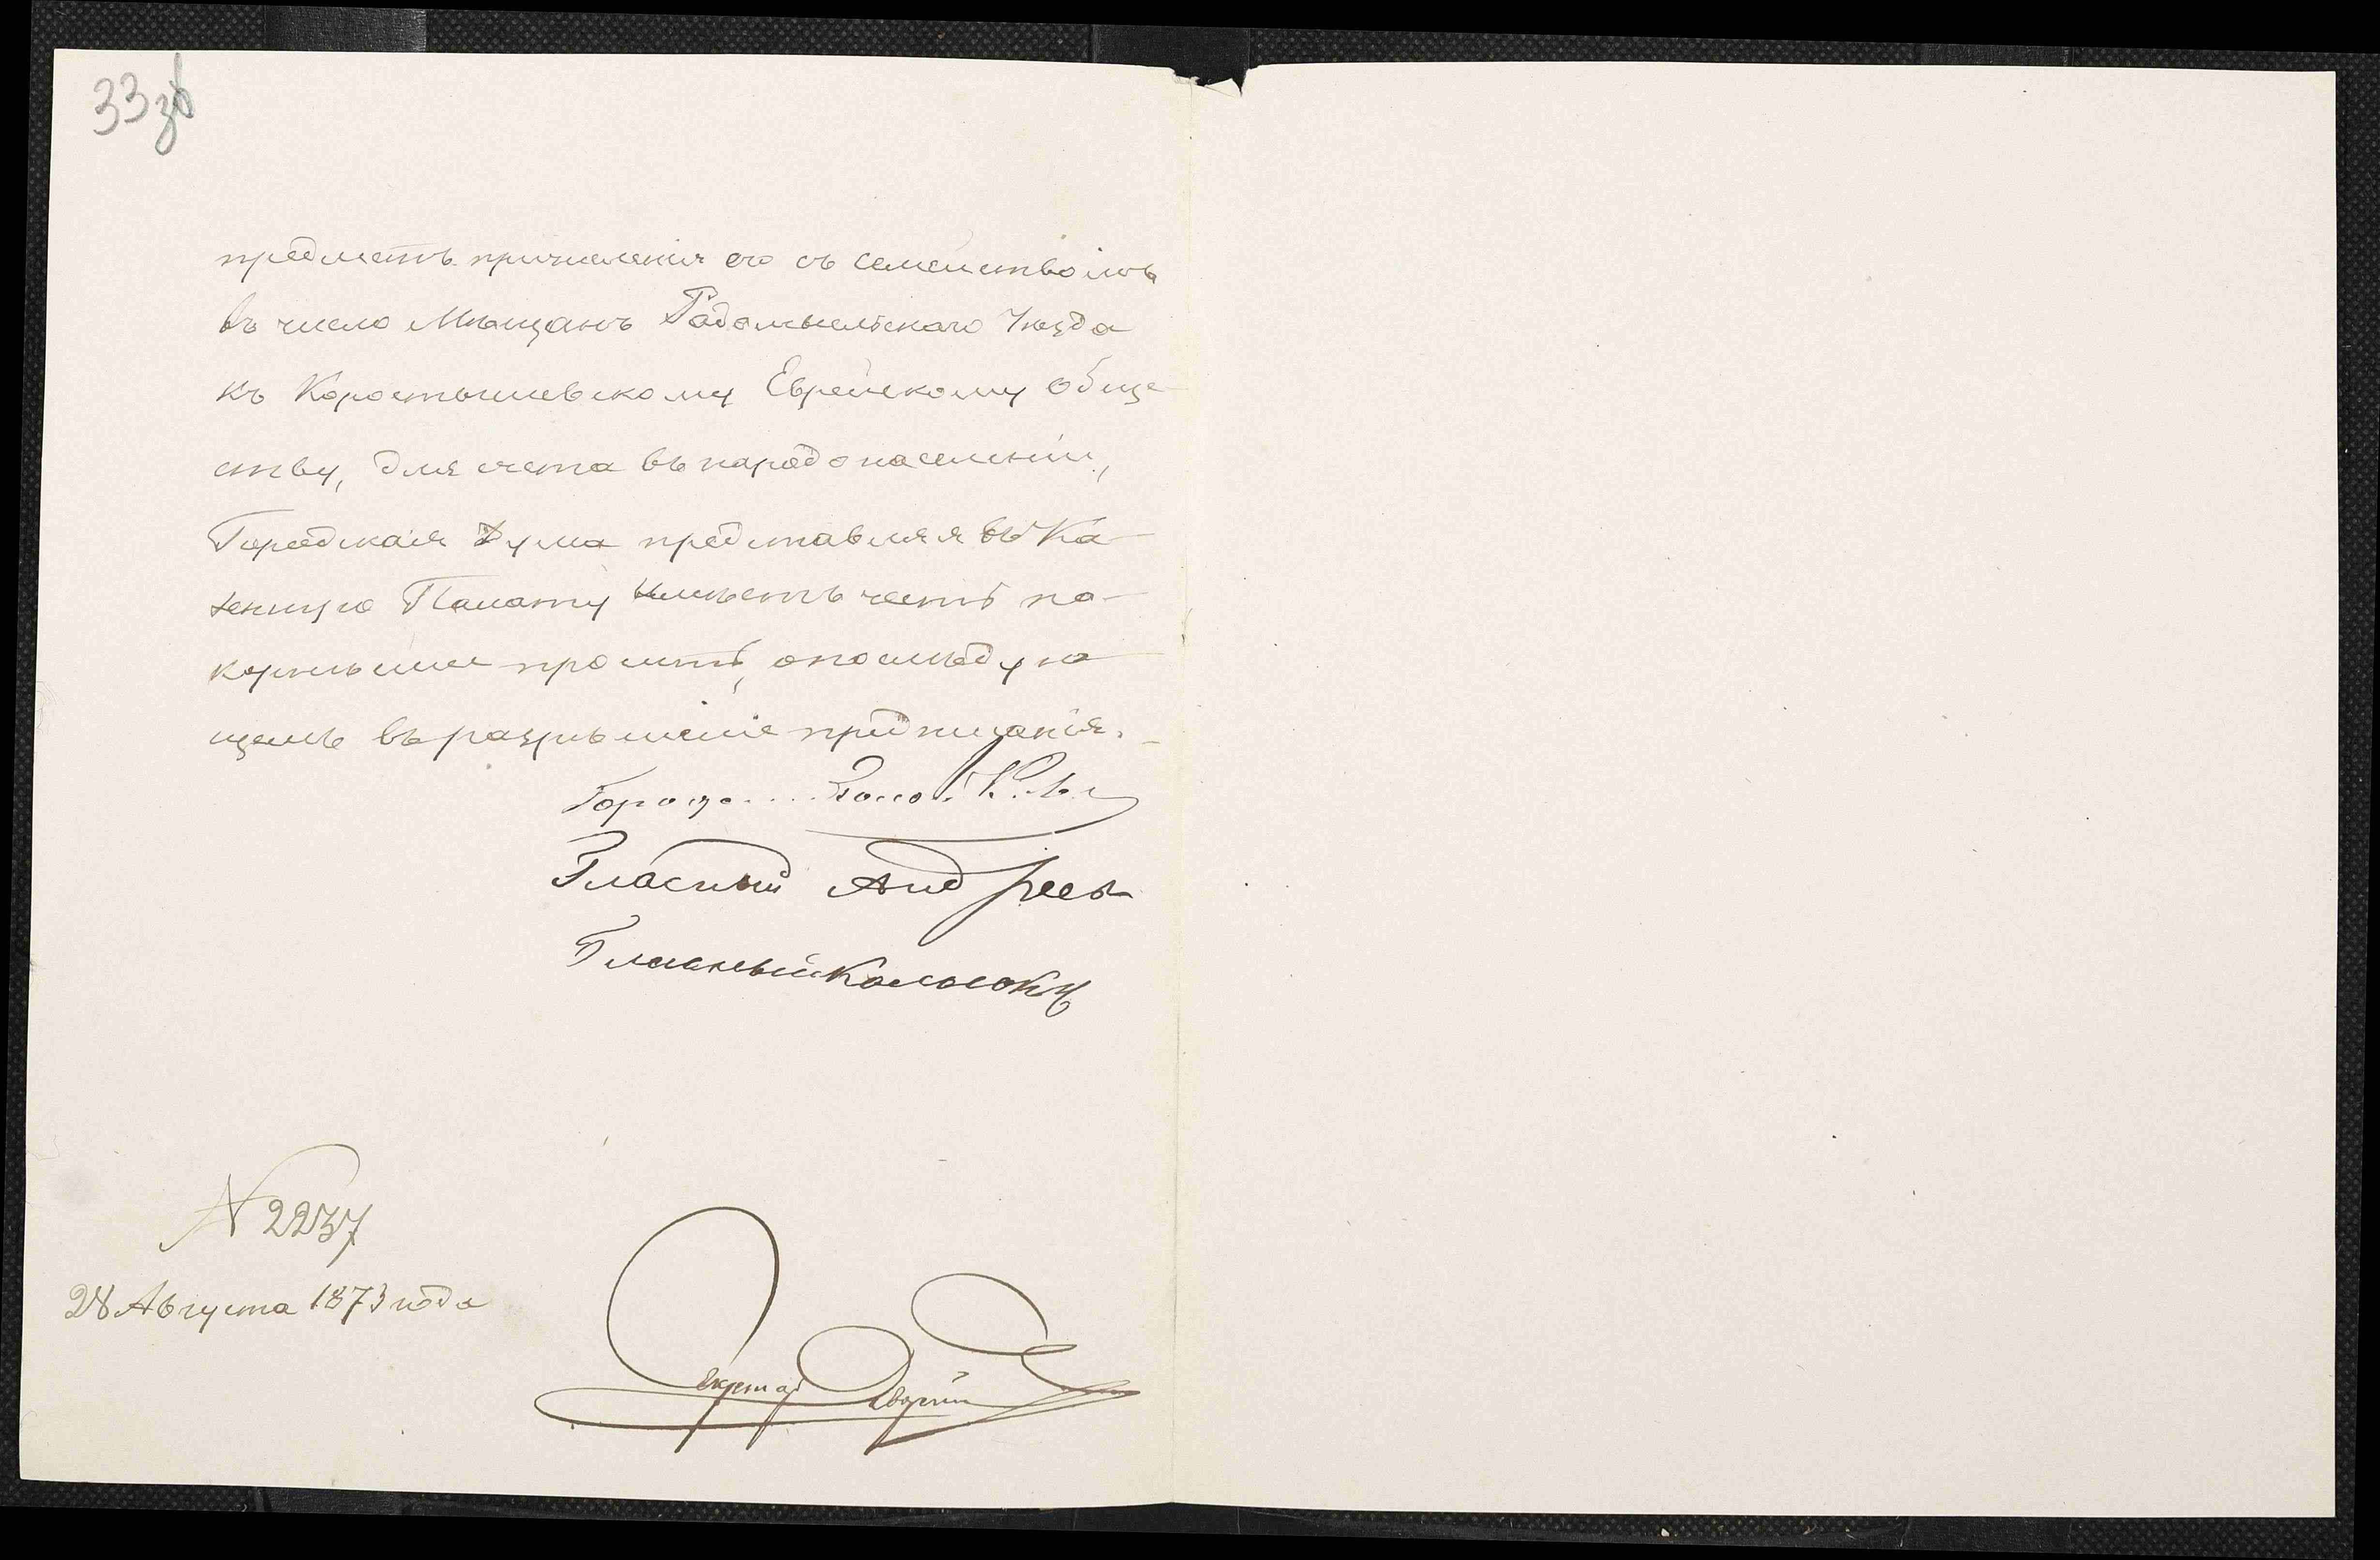 33 зв
предметъ причисленія его съ семействомъ
въ число Мѣщанъ Радомысльскаго Уѣзда
къ Коростышевскому Еврейскому обще
ству, для счета въ народонаселеніи,
Городская Дума представляя въ Ка-
зенную Палату имѣетъ честь по-
корнѣйше просить, о послѣдую
щемъ въ разрѣшеніе предписанія.
Гласный Андреев
Гласный
N 2237
28 Августа 1873 года
Секретар